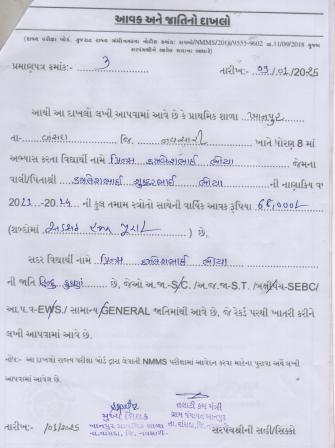 આવક અને જાતિનો દાખલો
(રાજ્ય પરીક્ષા બોર્ડ, ગુજરાત રાજ્ય ગાંધીનગરના નોટીસ ક્રમાંક: રાપબો/NMMS/2018/9555-9602 તા.11/09/2018 મુજબ
સરપંચશ્રીએ આપેલ દાખલાના આધારે)
પ્રમાણપત્ર ક્રમાંક:- 3
તારીખ:- 09/01/2025
આથી આ દાખલો લખી આપવામાં આવે છે કે પ્રાથમિક શાળા ખાનપુર
તા- વાંસદા જિ. નવસારી ખાતે ધોરણ 8 માં
અભ્યાસ કરતા વિદ્યાર્થી નામે પ્રિન્સ જેમના
વાલી/પિતાશ્રી ની નાણાકિય વ
-20 ની કુલ તમામ સ્ત્રોતો સાથેની વાર્ષિક આવક રૂપિયા 68,000/
(શબ્દોમાં અડસઠ હજાર પુરા ) છે.
સદર વિદ્યાર્થી નામે પ્રિન્સ
ની જાતિ હિન્દુ છે, જેઓ અ.જા-S/C. /અ.જ.જા-S.T. /બક્ષીપંચ-SEBC/
આ.પ.વ-EWS./ સામાન્ય/GENERAL જાતિમાંથી આવે છે, જે રેકર્ડ પરથી ખાતરી કરીને
લખી આપવામાં આવે છે.
નોંધ:- આ દાખલો રાજ્ય પરીક્ષા બોર્ડ દ્વારા લેવાતી NMMS પરીક્ષામાં આવેદન કરવા માટેના પુરાવા અર્થે લખી
આપવામાં આવેલ છે.
મુખ્ય શિક્ષક
ખાનપુર પ્રાથમિક શાળા
તા.વાંસદા, જિ. નવસારી.
તલાટી કમ મંત્રી
ગ્રામ પંચાયત ખાનપુર
તા.વાંસદા, જિ.
તારીખ:- /01/2025
સરપંચશ્રીની સહી/સિક્કો